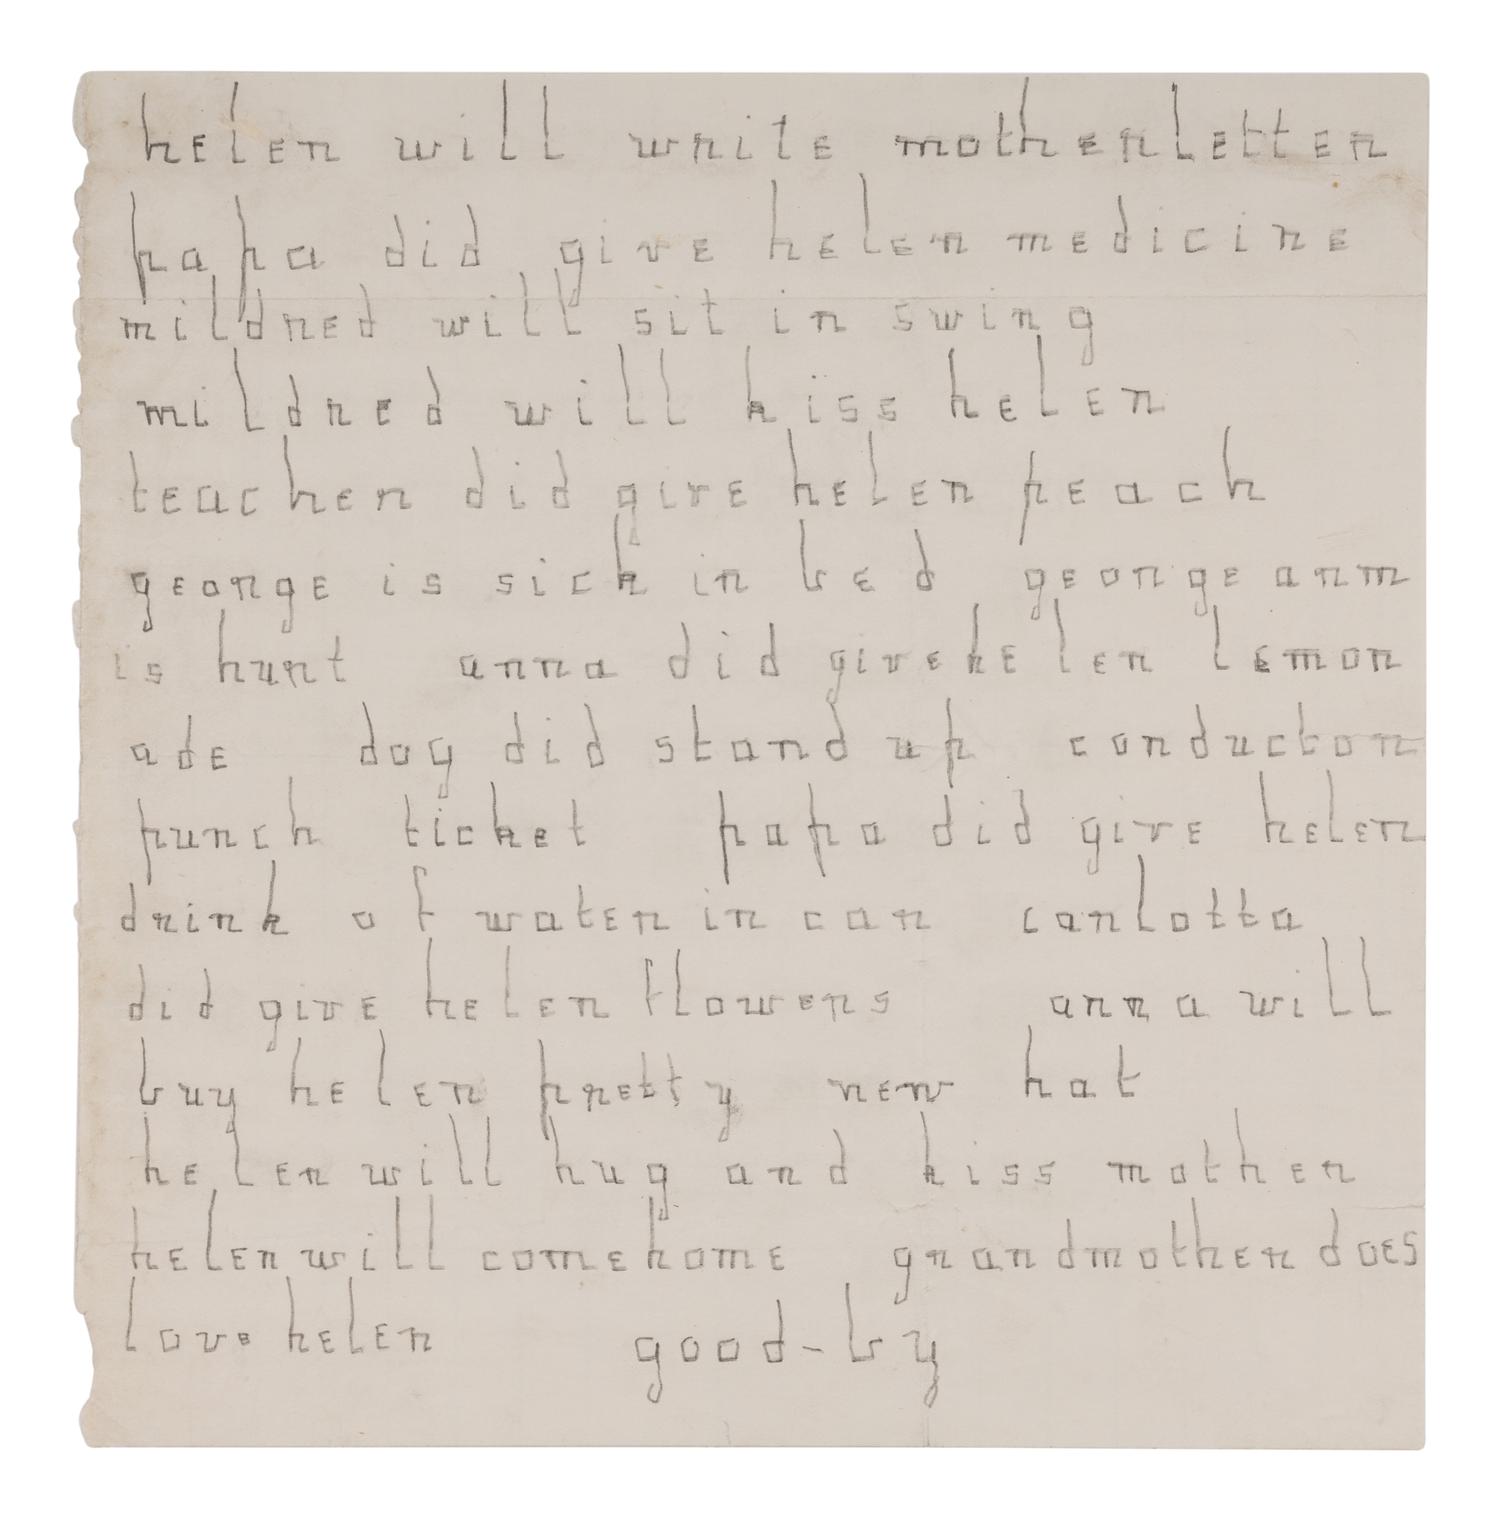 helen will write motherletter
papa did give helen medicine
mildred will sit in swing
mildred will kiss helen
teacher did give helen peach
george is sick in bed george arm
is hurt anna did givehelen lemon
ade dog did stand up conductor
punch ticket papa did give helen
drink of water in car carlotta
did give helen flowers anna will
buy helen pretty new hat
helen will hug and kiss mother
helen will come home grandmother does
love helen good-by